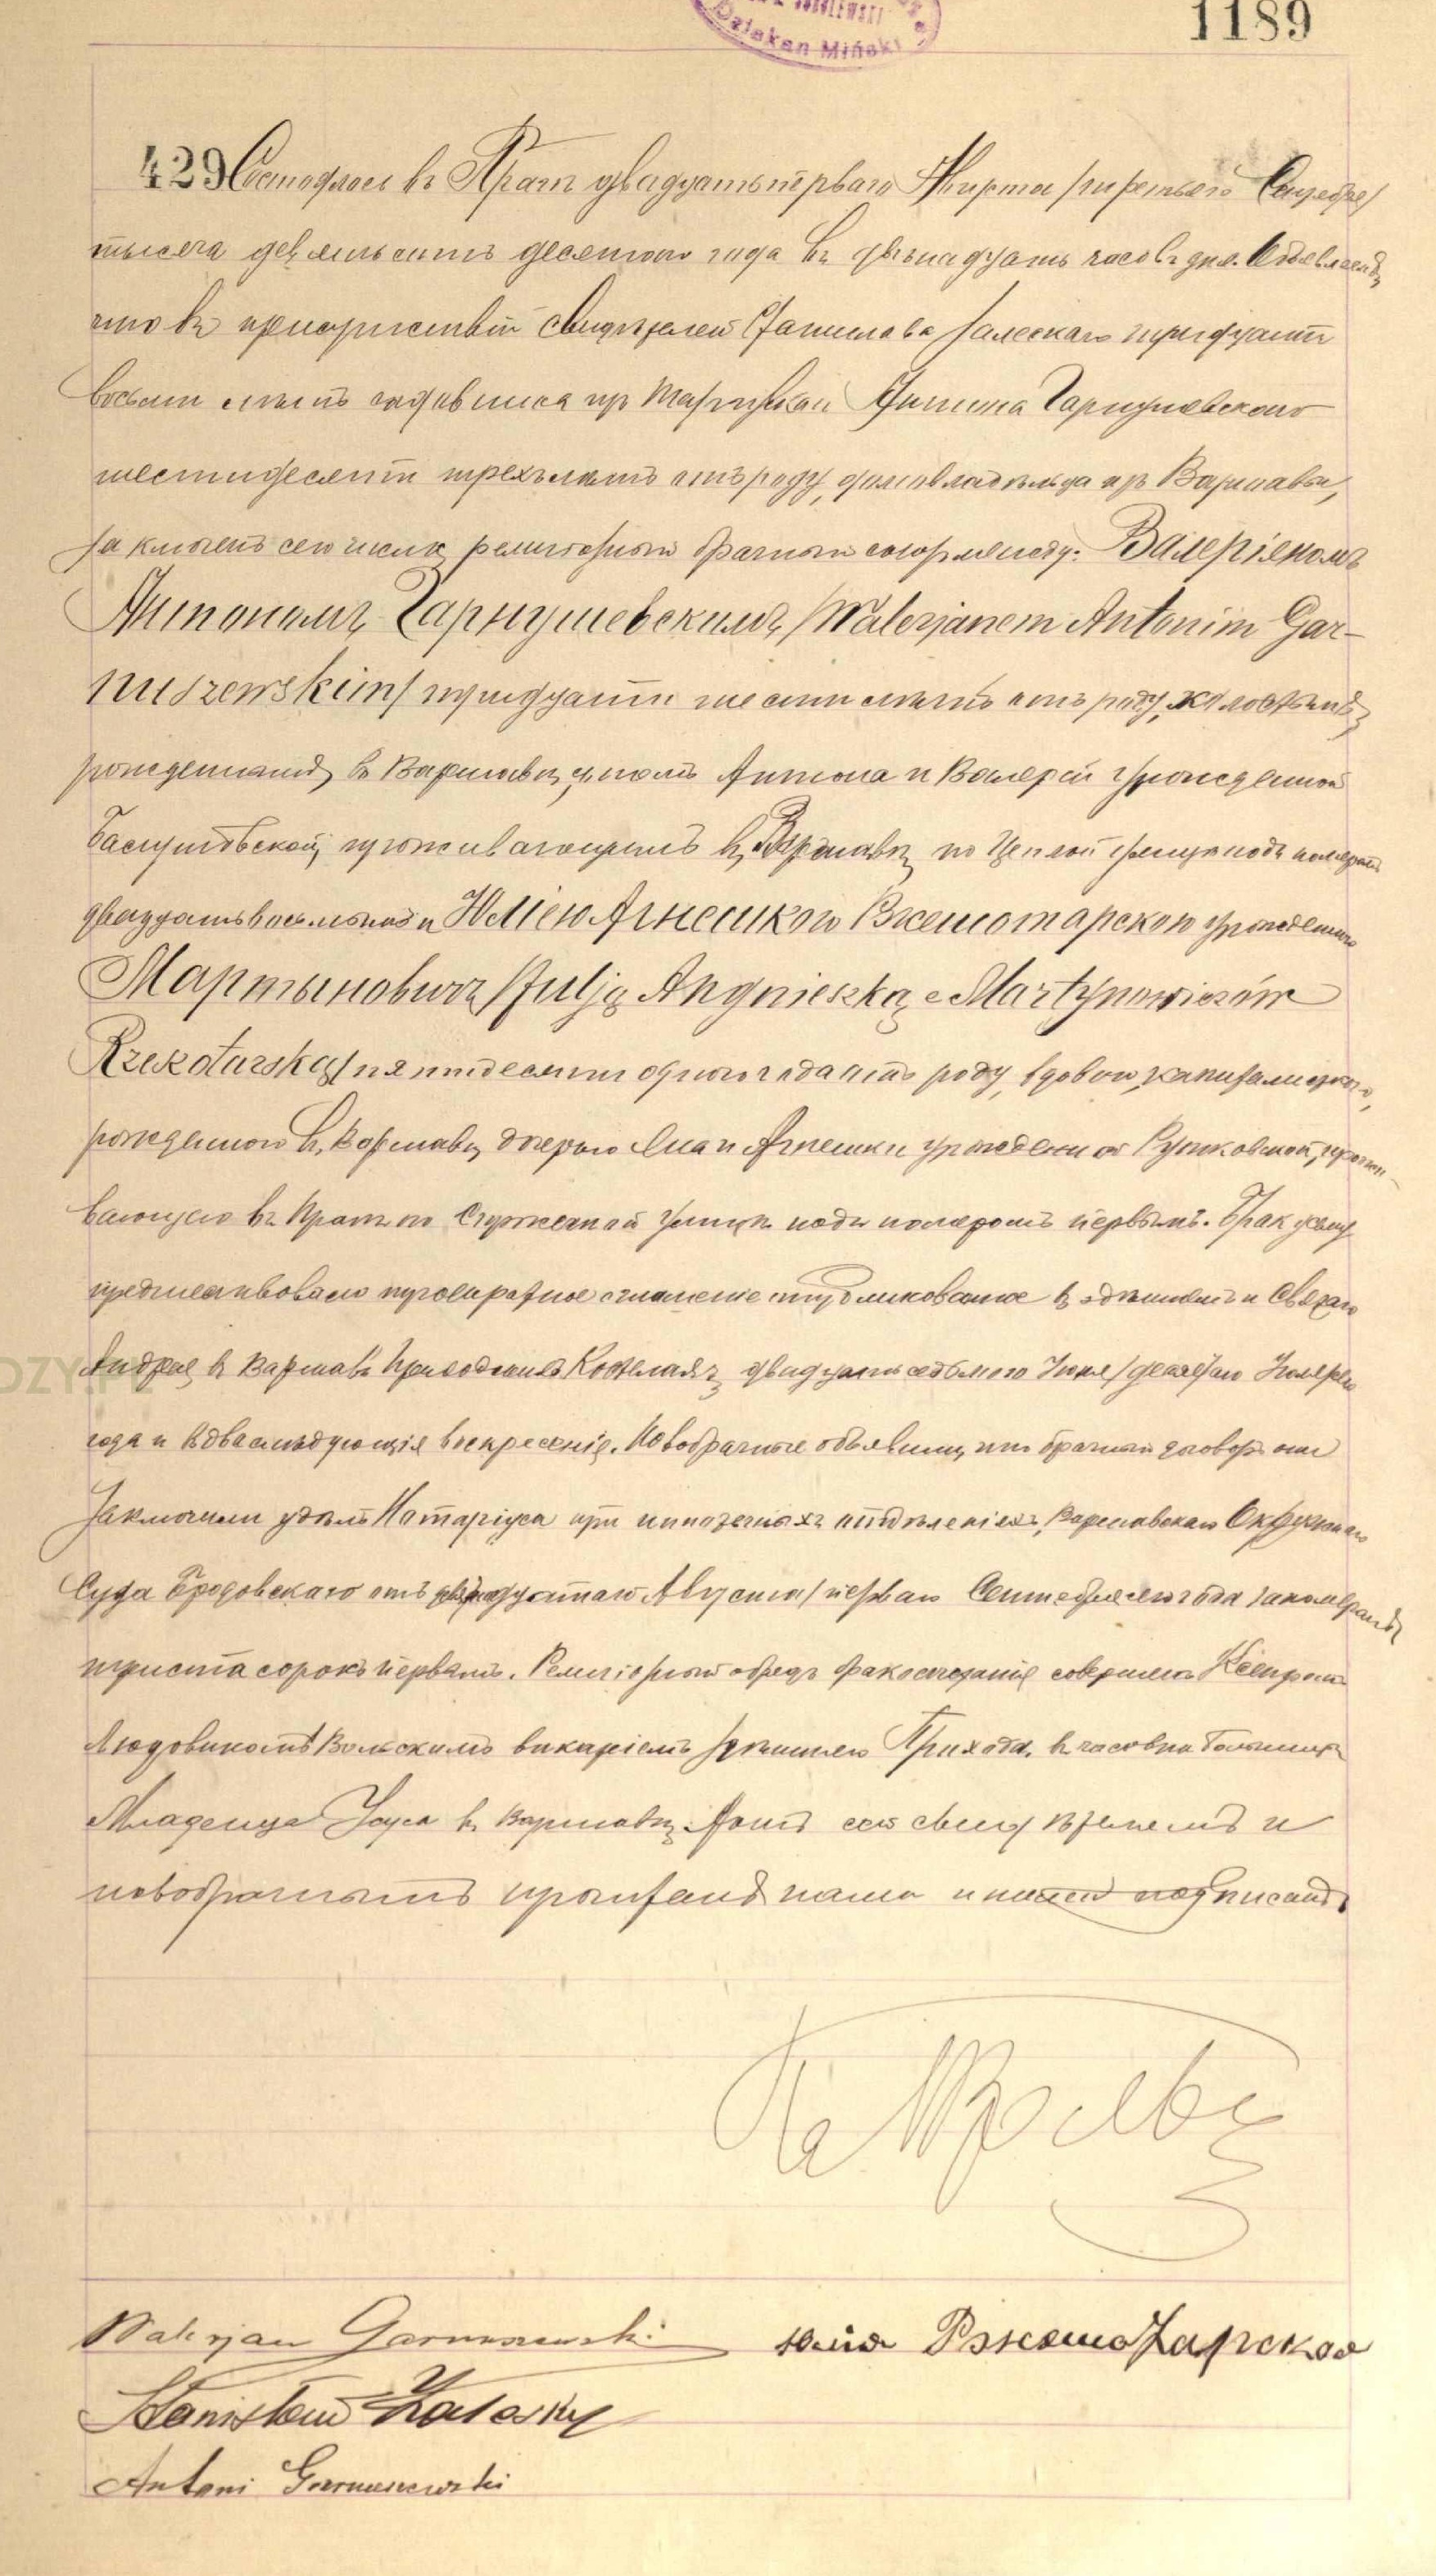 Дзѣкан Miński
1189
429 Состоялось въ Прагѣ двадцать перваго Августа /третьяго Сентября/
тысяча девятьсотъ десятаго года въ двѣнадцать часовъ дня. Объявляемъ
что въ присутствіи свидѣтелей Станислава Залескаго тридцати
восьми лѣтъ Антона Гарнушевскаго
шестидесяти трехъ лѣтъ отъ роду, домовладѣльца изъ Варшавы,
заключенъ сего числа религіозный брачный союзъ между: Валеріяномъ
Антономъ Гарнушевскимъ /Walerjanem Antonim Gar-
nuszewskim/ тридцати шести лѣтъ отъ роду, холостымъ,
рожденнымъ въ Варшавѣ, сыномъ Антона и Валеріи урожденной
проживающимъ въ Варшавѣ по Цеплой улицѣ подъ номеромъ
двадцать восьмымъ и Юліею Агнешкою Ржешотарскою урожденною
Мартыновичъ /Julją Angnieszką z Martynowiczów
Rzeszotarską/ пятидесяти одного года отъ роду, вдовою,
рожденною въ Варшавѣ, дочерью Яна и Агнешки урожденной прожи-
вающею въ Прагѣ по улицѣ подъ номеромъ первымъ. Браку сему
предшествовало троекратное оглашеніе опубликованное въ здѣшнемъ и Святаго
Андрея въ Варшавѣ Приходскихъ Костелахъ, двадцать седьмого Іюня /десятаго Іюля/ сего
года и въ два слѣдующія воскресенія. Новобрачные объявили, что брачный договоръ они
заключили у Нотаріуса при ипотечныхъ отдѣленіяхъ Варшавскаго Окружнаго
Суда Бродовскаго отъ Августа /перваго Сентября сего года за номеромъ
триста сорокъ первымъ. Религіозный обрядъ бракосочетанія совершенъ Ксендзомъ
Людовикомъ Вольскимъ викаріемъ здѣшняго Прихода, въ часовнѣ Больницы
Младенца Іисуса въ Варшавѣ. Актъ сей свидѣтелямъ и
новобрачнымъ прочитанъ нами и ними подписанъ.
Walerjan Garnuszewski Юлія Ржешотарская
Stanisław Zaleski
Antoni Garnuszewski